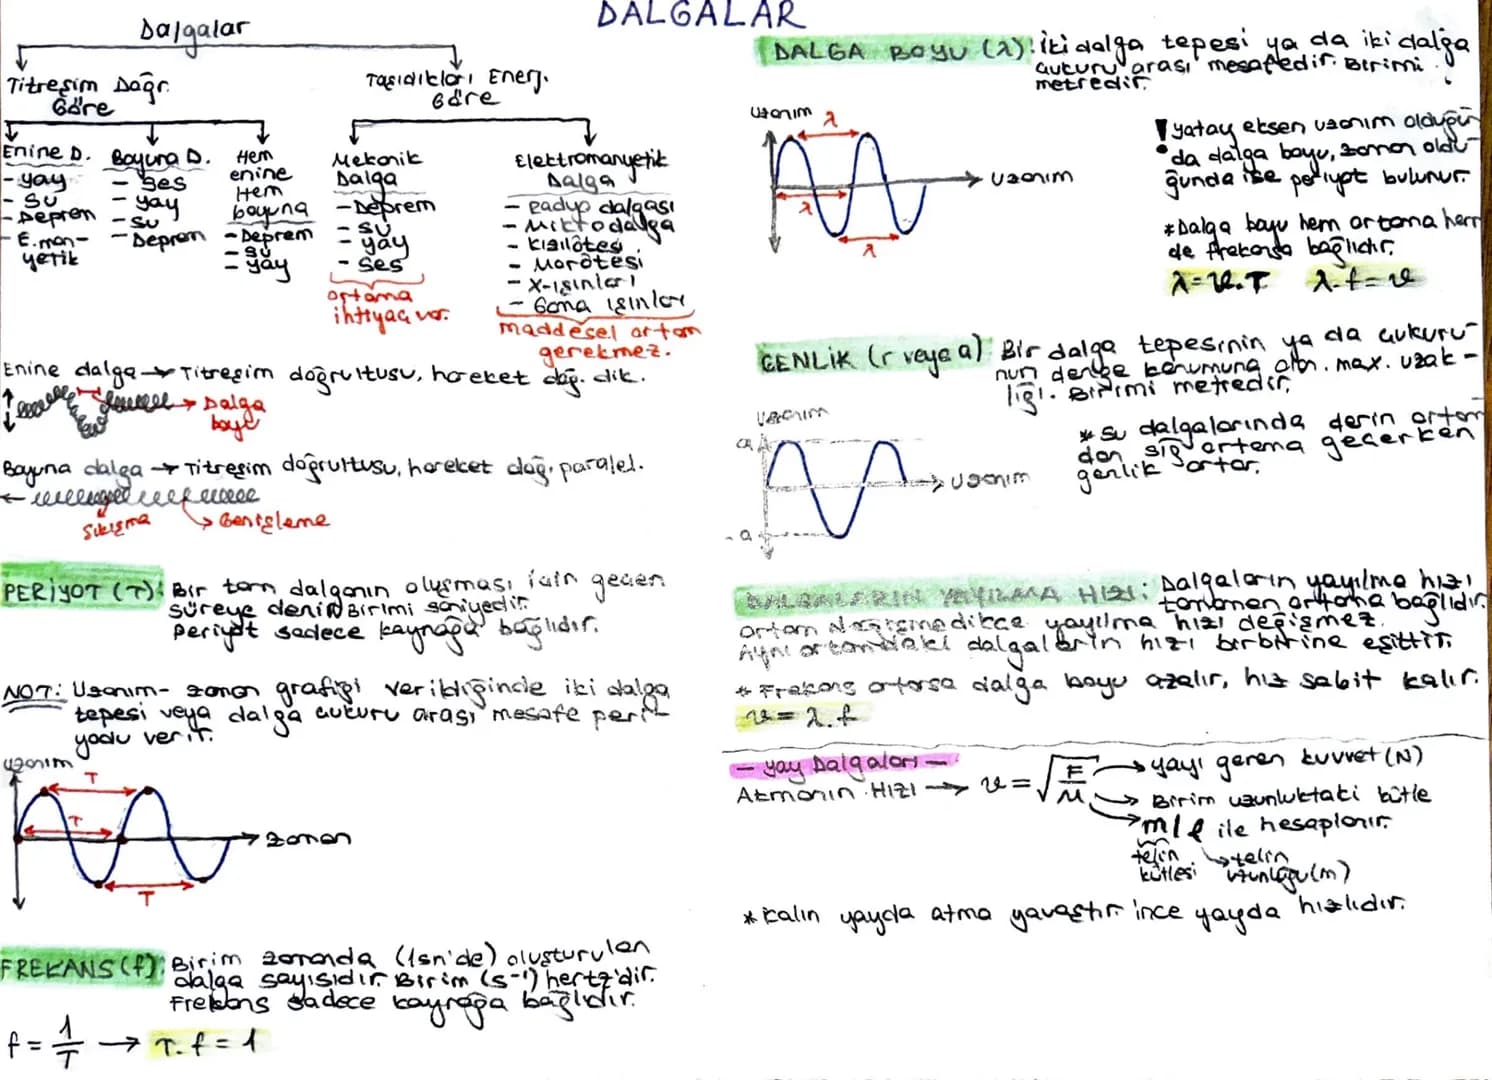 DALGALAR
Dalgalar
Titreşim Doğr.
Göre
Taşıdıkları Enerj.
Göre
Enine D.
- yay
- su
- Deprem
- E.man-
yetik
Boyuna D.
- ses
- yay
- su
- Deprem
Hem
enine
Hem
boyuna
- Deprem
- su
- yay
Mekanik
Dalga
- Deprem
- su
- yay
- ses
ortama
ihtiyaç var.
Elektromanyetik
Dalga
- Radyo dalgası
- Mikrodalga
- Kızılötesi
- Morötesi
- X-ışınları
- Gama ışınları
maddesel ortam
gerekmez.
Enine dalga → Titreşim doğrultusu, hareket doğ. dik.
Dalga
boyu
Boyuna dalga → Titreşim doğrultusu, hareket doğ. paralel.
Sıkışma
Genişleme
PERİYOT (T): Bir tam dalganın oluşması için geçen
süreye denir. Birimi saniyedir.
Periyot sadece kaynağa bağlıdır.
NOT: Uzanım - zaman grafiği verildiğinde iki dalga
tepesi veya dalga çukuru arası mesafe peri-
yodu verir.
uzanım
T
T
T
zaman
FREKANS (f): Birim zamanda (1sn'de) oluşturulan
dalga sayısıdır. Birim (s⁻¹) hertz'dir.
Frekans sadece kaynağa bağlıdır.
f = 1/T → T.f = 1
DALGA BOYU (λ): iki dalga tepesi ya da iki dalga
çukuru arası mesafedir. Birimi
metredir.
Uzanım
λ
λ
λ
uzanım
! yatay eksen uzanım olduğun
da dalga boyu, zaman oldu-
ğunda ise periyot bulunur.
* Dalga boyu hem ortama hem
de frekansa bağlıdır.
λ = v.T λ.f = v
GENLİK (r veya a) Bir dalga tepesinin ya da çukuru-
nun denge konumuna olan max. uzak-
lığı. Birimi metredir.
Uzanım
a
-a
uzanım
* Su dalgalarında derin ortam
dan sığ ortama geçerken
genlik artar.
DALGALARIN YAYILMA HIZI: Dalgaların yayılma hızı
tamamen ortama bağlıdır.
Ortam değişmedikçe yayılma hızı değişmez.
Aynı ortamdaki dalgaların hızı birbirine eşittir.
* Frekans artarsa dalga boyu azalır, hız sabit kalır.
v = λ.f
- Yay Dalgaları -
Atmanın Hızı → v = √F/μ → yayı geren kuvvet (N)
→ Birim uzunluktaki kütle
→ m/l ile hesaplanır.
telin
kütlesi
→ telin
uzunluğu (m)
* Kalın yayda atma yavaştır ince yayda hızlıdır.